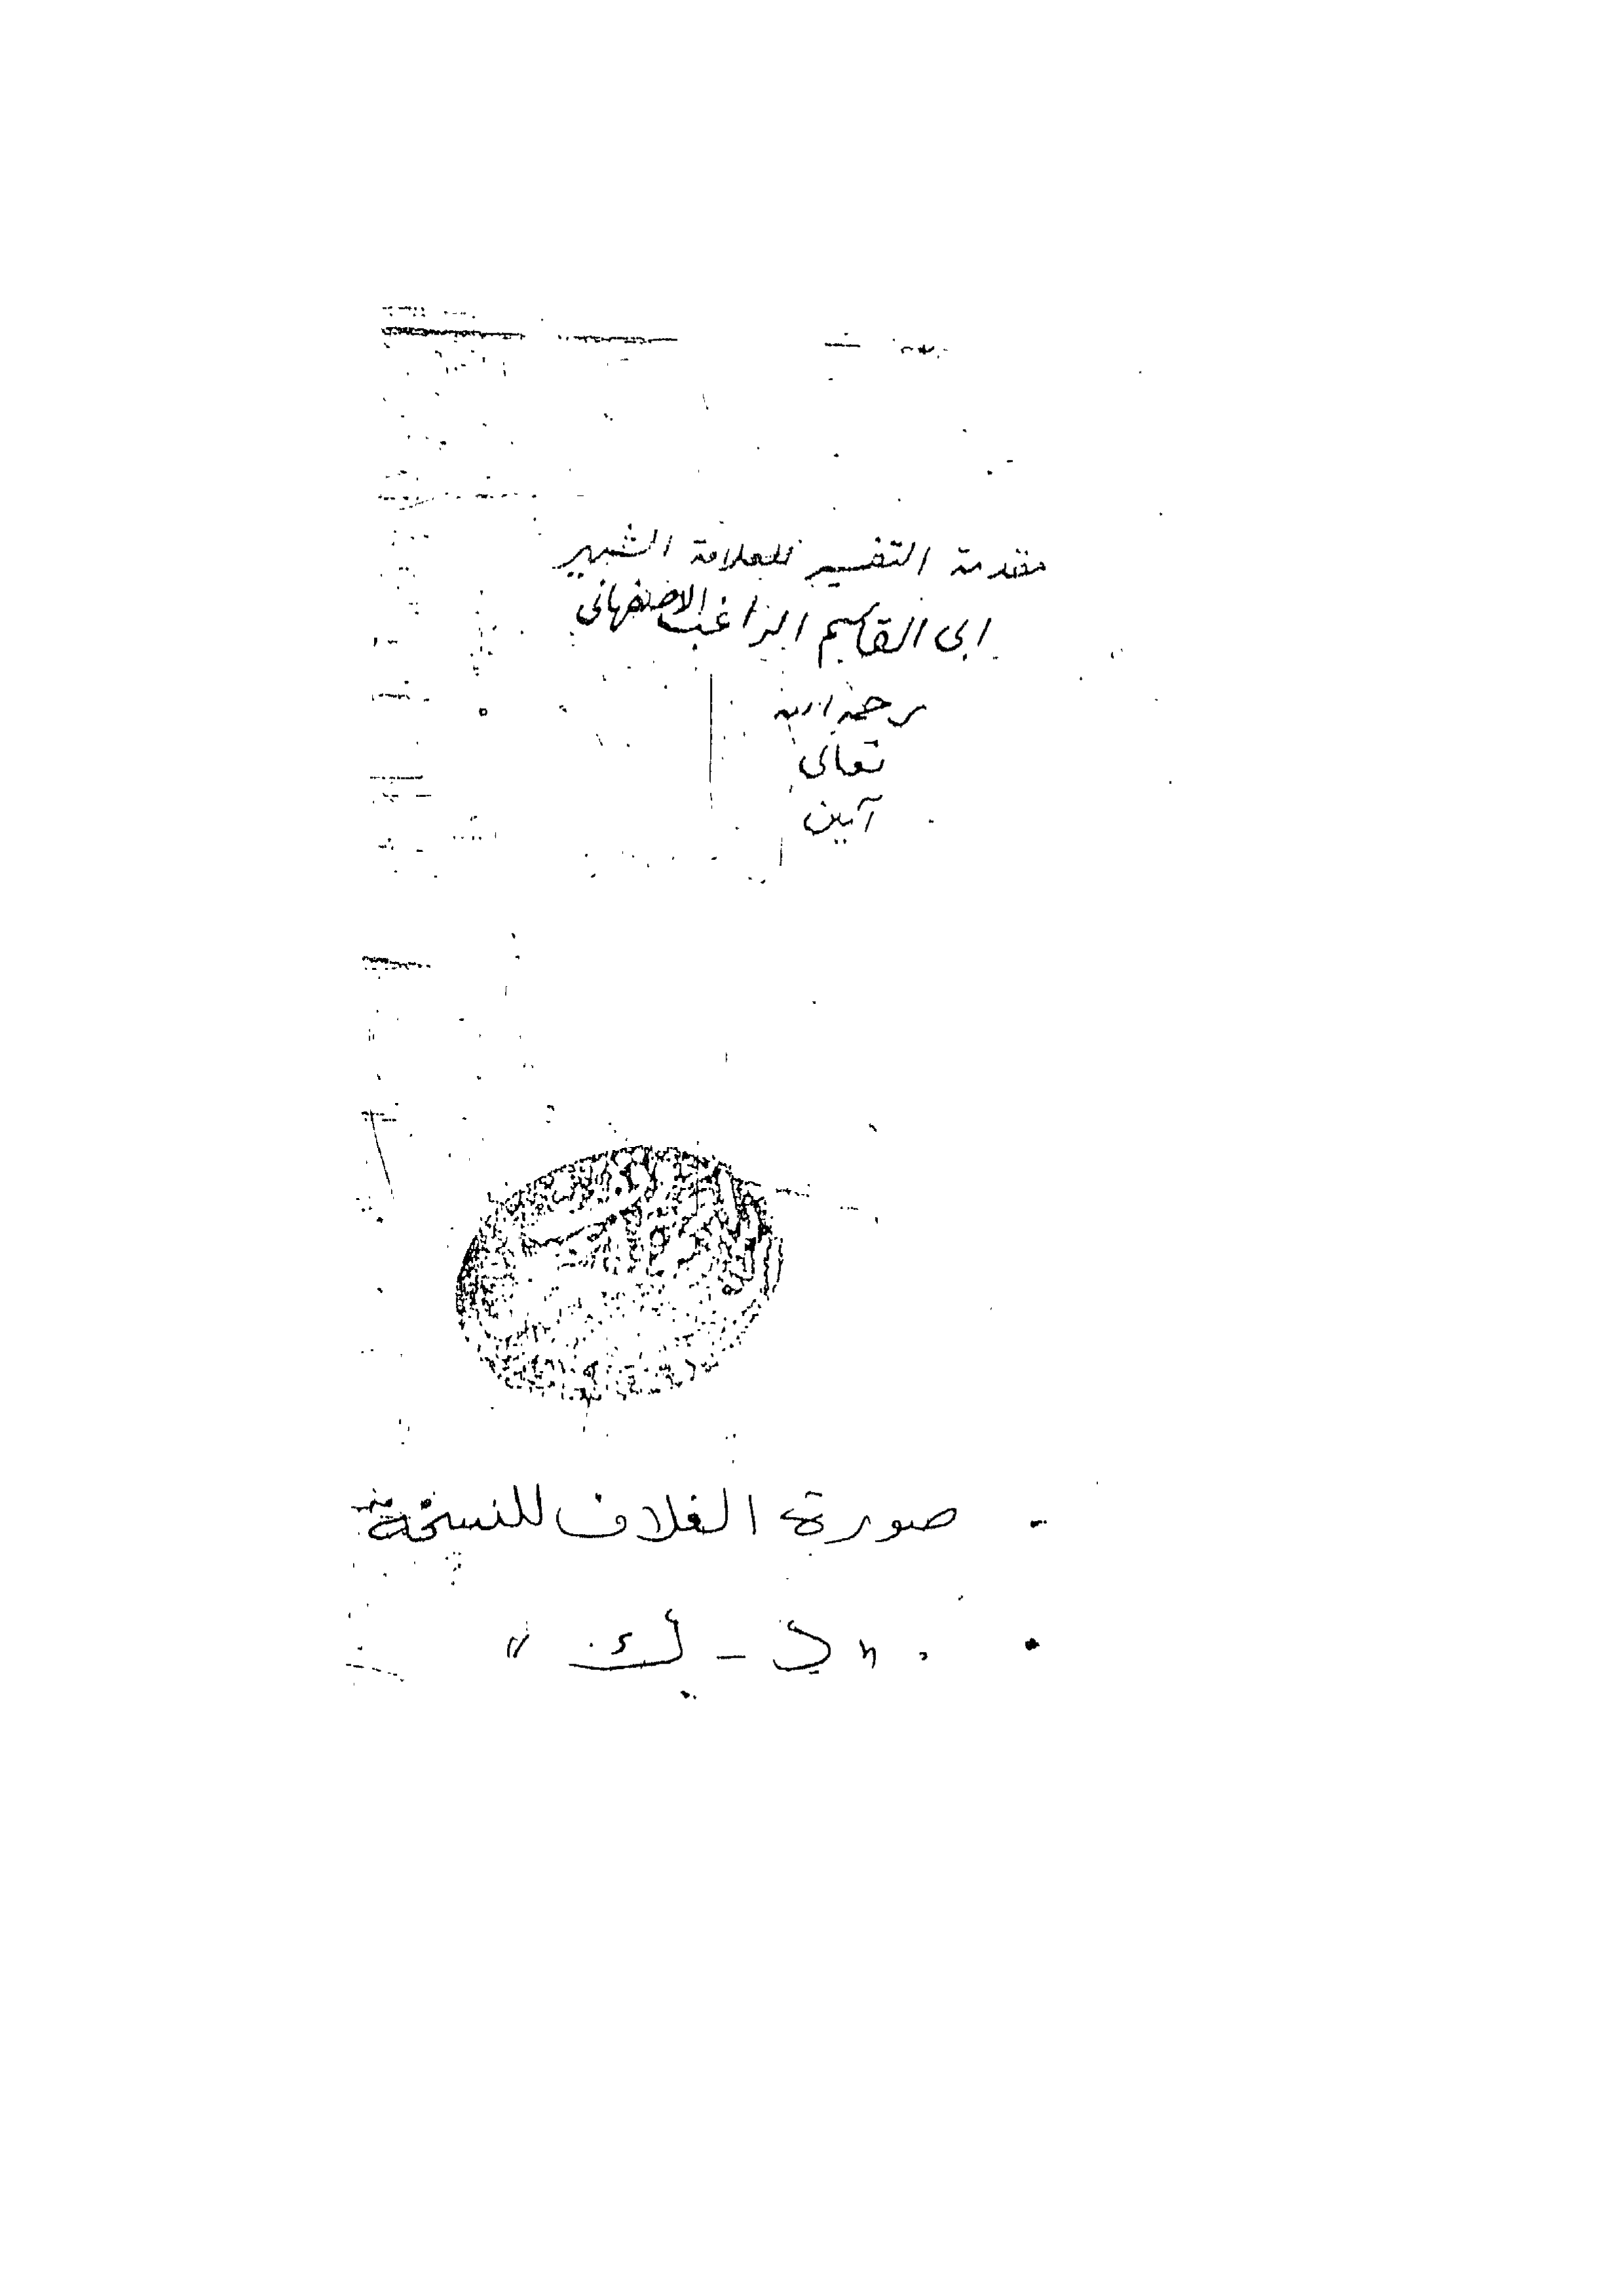 مقدمة التفسير للعلامة الشهير
ابى القاسم الراغب الاصفهانى
رحمه الله
تعالى
آمين
- صورة الغلاف للنسخة